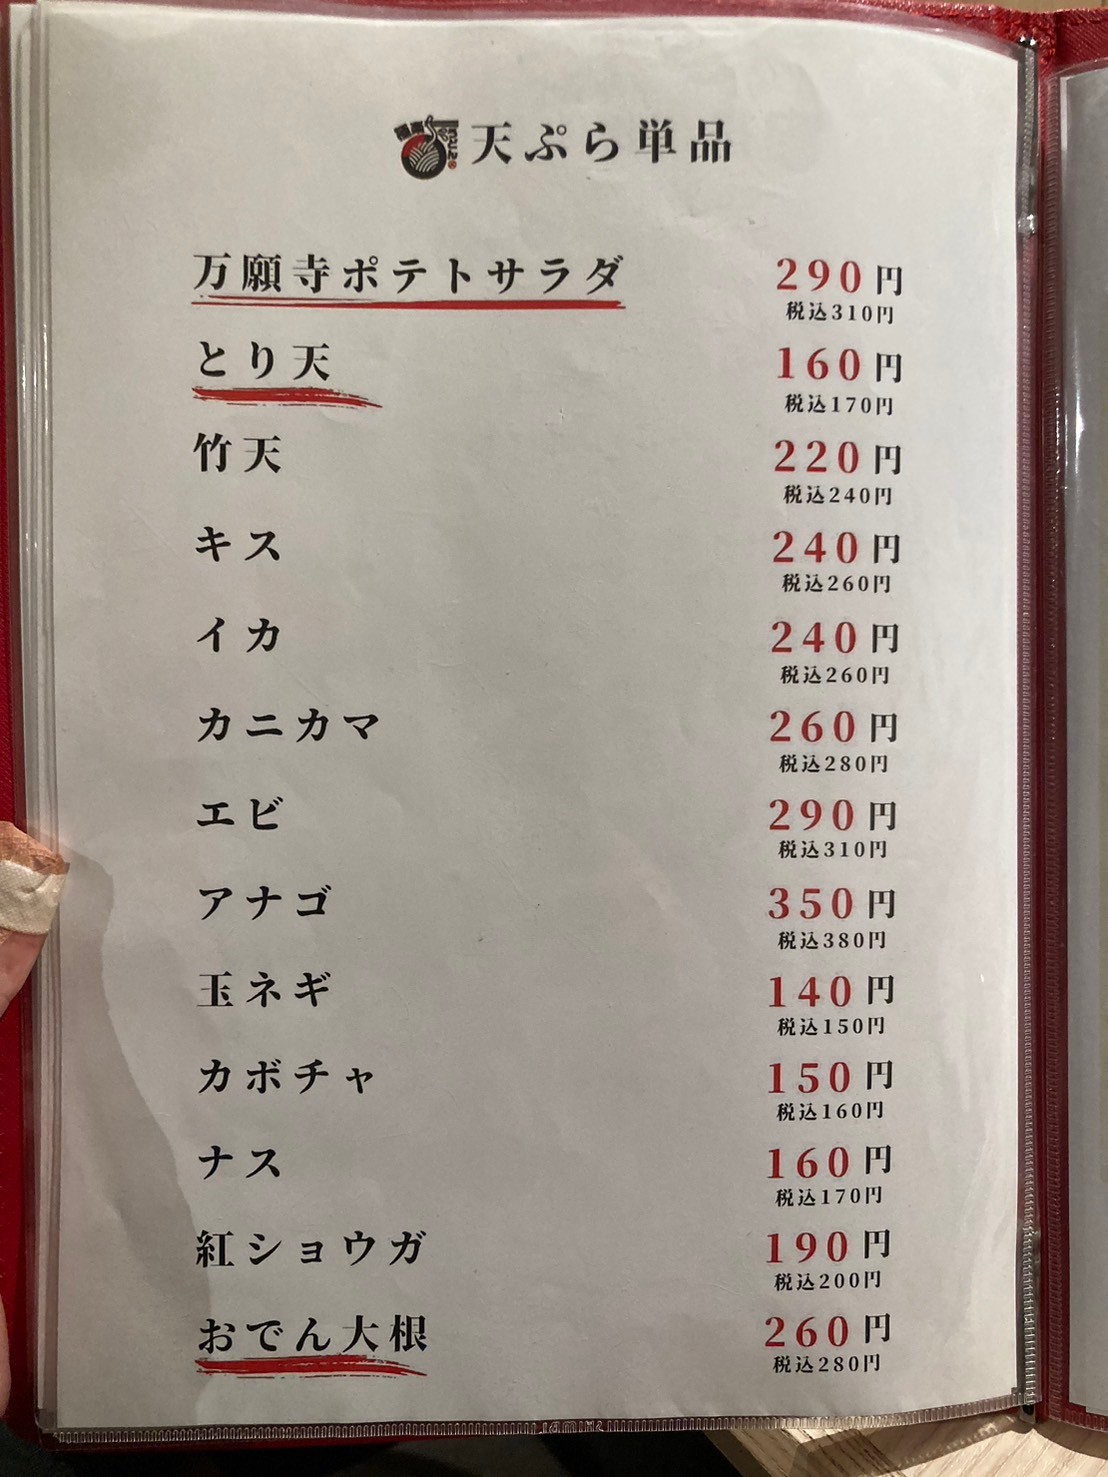 天ぷら単品
万願寺ポテトサラダ 290円
税込310円
とり天 160円
税込170円
竹天 220円
税込240円
キス 240円
税込260円
イカ 240円
税込260円
カニカマ 260円
税込280円
エビ 290円
税込310円
アナゴ 350円
税込380円
玉ネギ 140円
税込150円
カボチャ 150円
税込160円
ナス 160円
税込170円
紅ショウガ 190円
税込200円
おでん大根 260円
税込280円